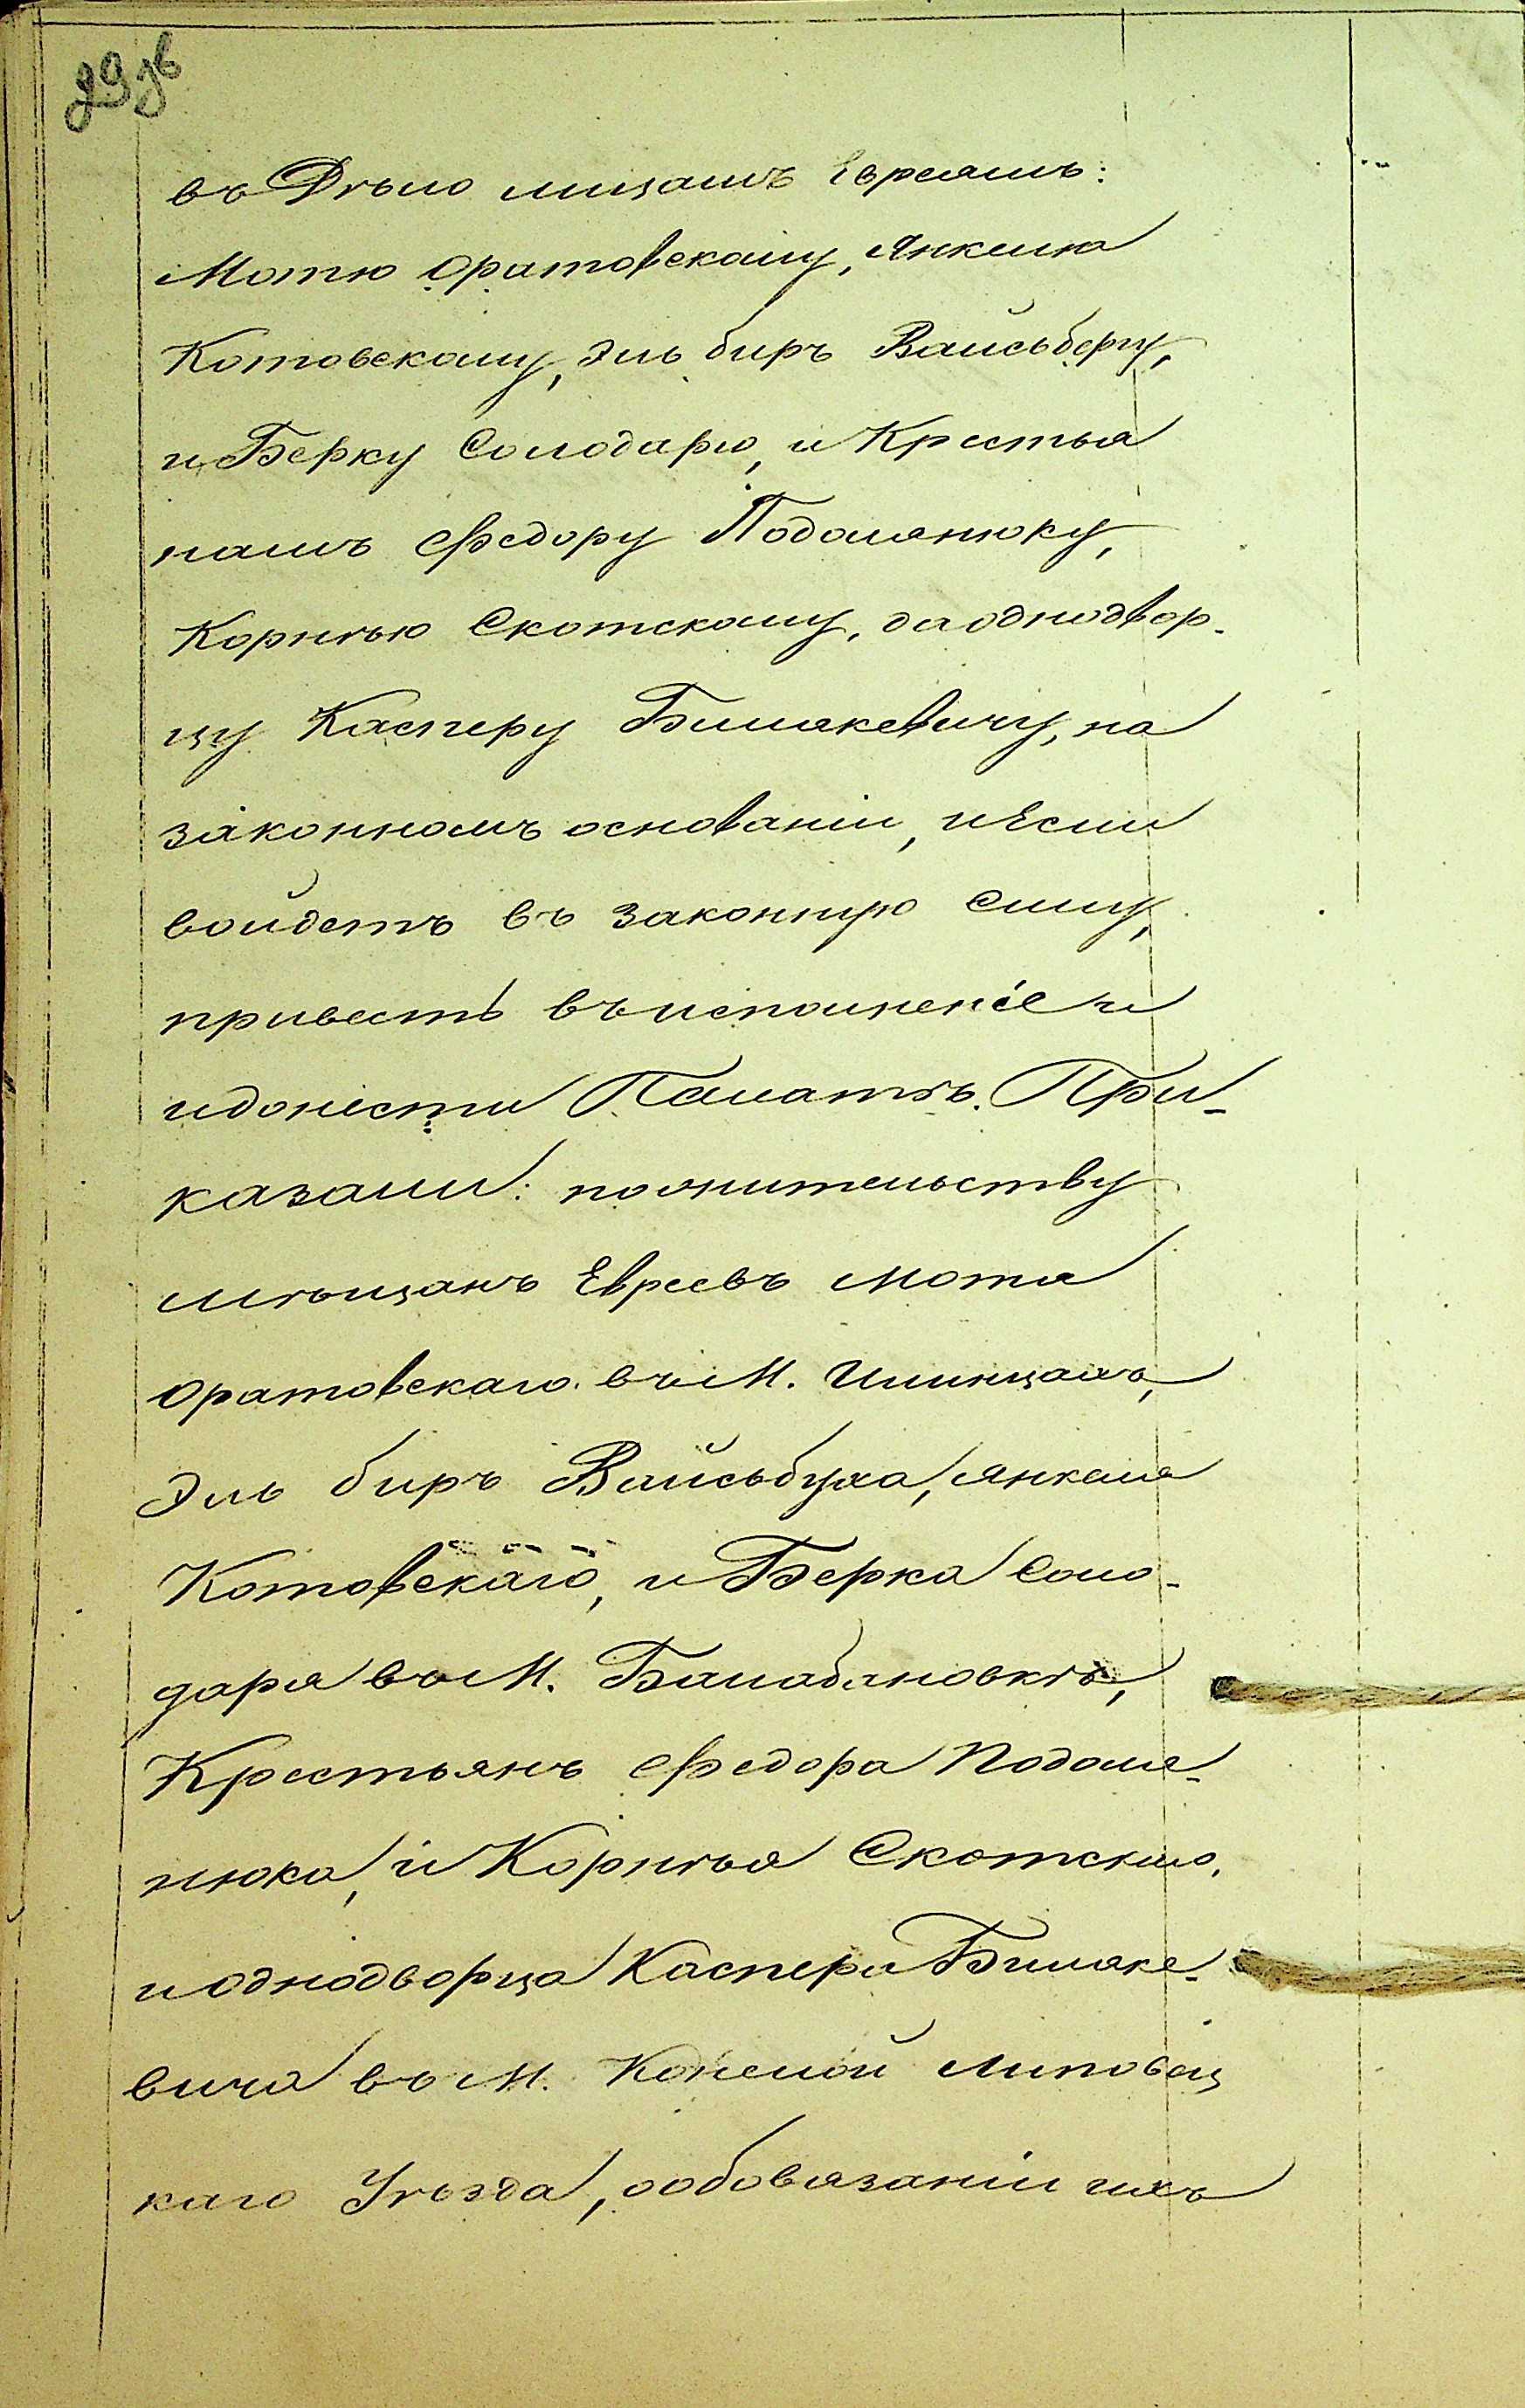 29 зв
въ Дѣло лицамъ Евреямъ:
Мотю Оратовскому, Янкелю
Котовскому, Эль биръ Вайсьбергу,
и Берку Солодарю, и Крестья
намъ Ѳедору Подолянюку,
Корнѣю Скотскому, да однодвор-
цу Касперу Билякевичу, на
законномъ основаніи, и Если
войдетъ въ законную силу,
привесть въ исполненіе и
и донести Палатѣ. При-
казали: по жительству
мѣщанъ Евреевъ Мотя
Оратовскаго въ М. Илинцахъ,
Эль биръ Вайсьбуха, Янкеля
Котовскаго, и Берка Соло-
даря въ М. Балабановкѣ,
Крестьянъ Ѳедора Подоля-
нюка, и Корнѣя Скотскаго,
и однодворца Каспера Билаке-
вича въ М. Конелой Липовец
каго Уѣзда, о обовязаніи ихъ